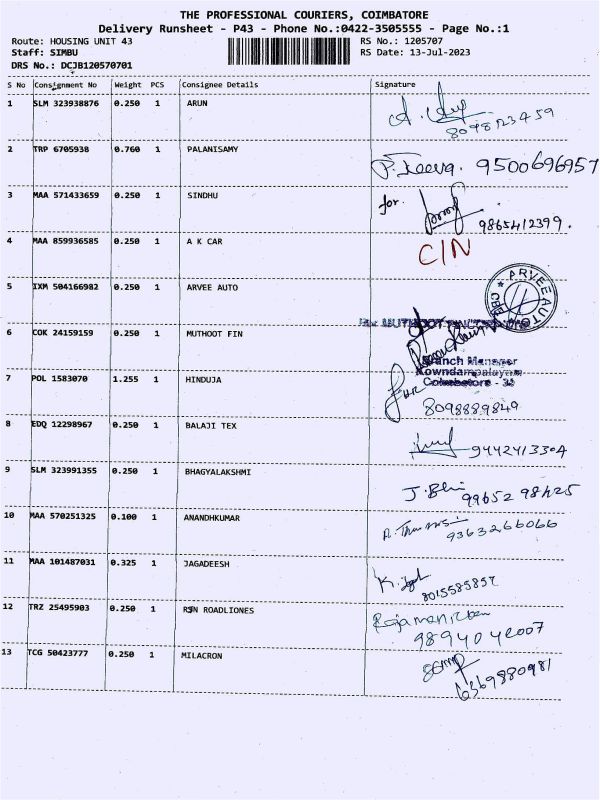 THE PROFESSIONAL COURIERS, COIMBATORE
Delivery Runsheet - P43 - Phone No.:0422-3505555 - Page No.:1
Route: HOUSING UNIT 43 RS No.: 1205707
Staff: SIMBU RS Date: 13-Jul-2023
DRS No.: DCJB120570701
S No Consignment No Weight PCS Consignee Details Signature
1 SLM 323938876 0.250 1 ARUN
2 TRP 6705938 0.760 1 PALANISAMY P. Jeeva. 9500696957
3 MAA 571433659 0.250 1 SINDHU for. 9865412399.
4 MAA 859936585 0.250 1 A K CAR C/N
5 IXM 504166982 0.250 1 ARVEE AUTO ARVEE AUTO CBE
For MUTHOOT FINCORP
6 COK 24159159 0.250 1 MUTHOOT FIN
Branch Manager
Kowndampalayam
7 POL 1583070 1.255 1 HINDUJA Coimbatore - 30
For
8098889849
8 EDQ 12298967 0.250 1 BALAJI TEX 9442413304
9 SLM 323991355 0.250 1 BHAGYALAKSHMI 99652 98425
10 MAA 570251325 0.100 1 ANANDHKUMAR 9363266066
11 MAA 101487031 0.325 1 JAGADEESH 8015585857
12 TRZ 25495903 0.250 1 RSN ROADLIONES
13 TCG 50423777 0.250 1 MILACRON 6369880981